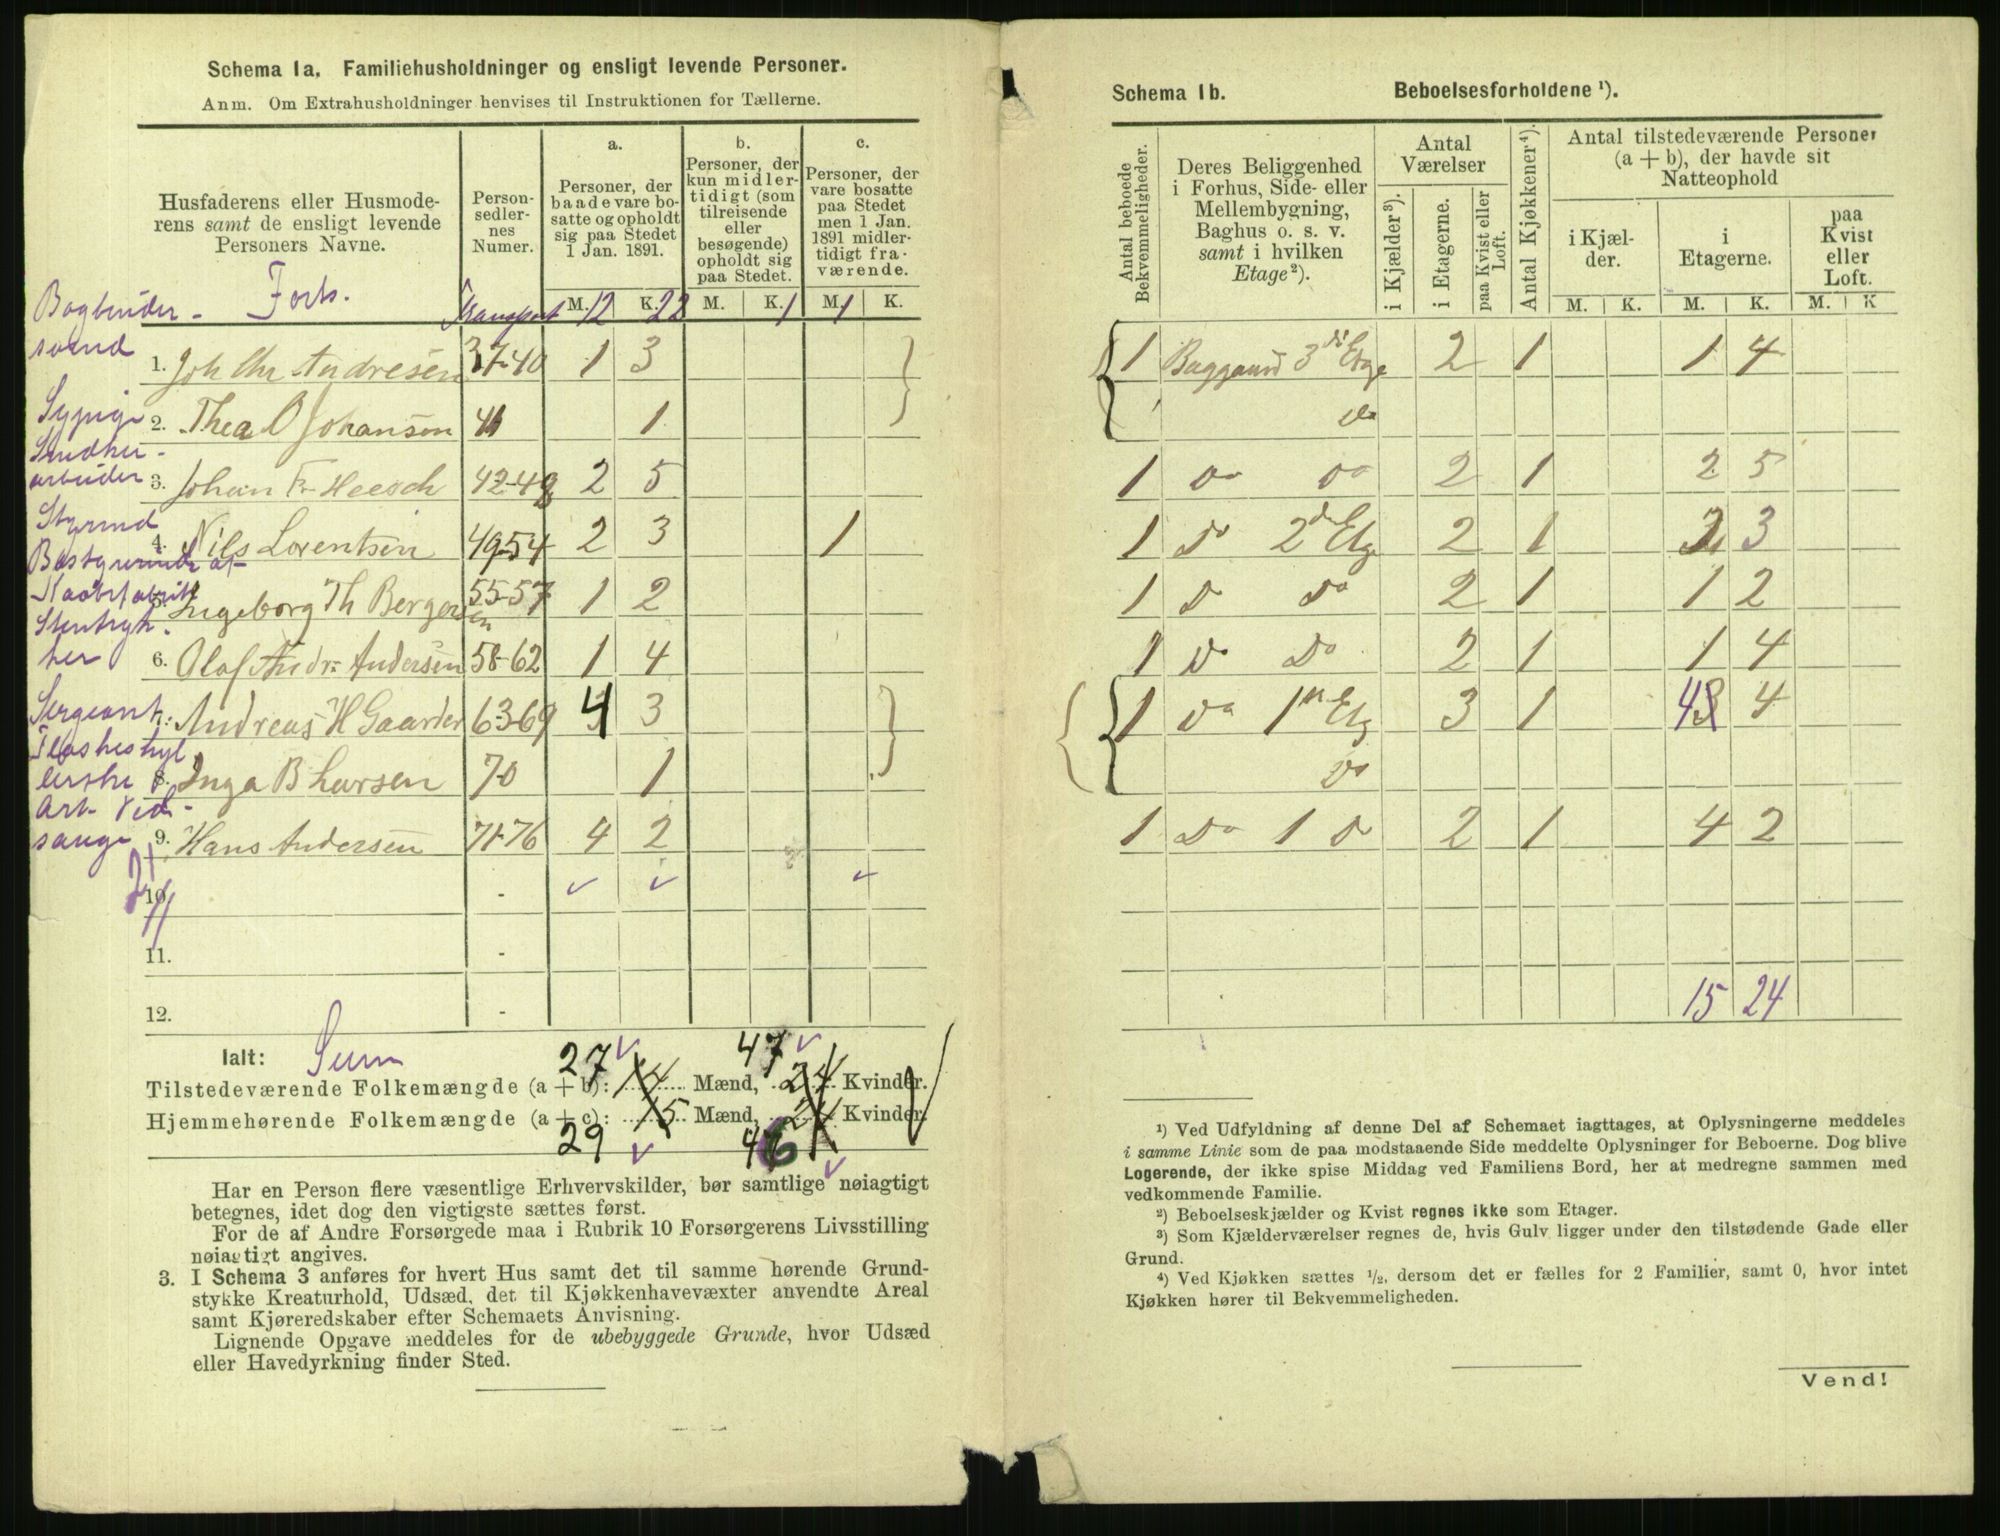 Schema 1a. Familiehusholdninger og ensligt levende Personer.
Anm. Om Extrahusholdninger henvises til Instruktionen for Tællerne.
Husfaderens eller Husmoderens samt de ensligt levende Personers Navne.
Person-sedler-nes Numer.
a. Personer, der baade vare bosatte og opholdt sig paa Stedet 1 Jan. 1891.
b. Personer, der kun midlertidigt (som tilreisende eller besøgende) opholdt sig paa Stedet.
c. Personer, der vare bosatte paa Stedet men 1 Jan. 1891 midlertidigt fraværende.
M. K. M. K. M. K.
Forts. Transport 12 22 1 1
Bogbinder-svend
1. Joh Chr Andresen 37-40 1 3
Sypige
2. Thea O Johansen 41 1
arbeider 3. Johan Fr Heesch 42-48 2 5
Styrmd
4. Nils Lorentsen 49-54 2 3 1
5. Ingeborg Th Bergersen 55-57 1 2
Stenhugher
6. Olaf Andr. Andersen 58-62 1 4
Sergeant
7. Andreas H Gaarder 63-69 4 3
8. Inga B Larsen 70 1
Arb. Ved-sange
9. Hans Andersen 71-76 4 2
10.
11.
12.
Ialt: Sum
27 47
Tilstedeværende Folkemængde (a + b): 14 Mænd, 24 Kvinder.
Hjemmehørende Folkemængde (a + c): 15 Mænd, 24 Kvinder.
29 46
Har en Person flere væsentlige Erhvervskilder, bør samtlige nøiagtigt
betegnes, idet dog den vigtigste sættes først.
For de af Andre Forsørgede maa i Rubrik 10 Forsørgerens Livsstilling
nøiagtigt angives.
3. I Schema 3 anføres for hvert Hus samt det til samme hørende Grund-
stykke Kreaturhold, Udsæd, det til Kjøkkenhavevæxter anvendte Areal
samt Kjøreredskaber efter Schemaets Anvisning.
Lignende Opgave meddeles for de ubebyggede Grunde, hvor Udsæd
eller Havedyrkning finder Sted.
Schema 1b. Beboelsesforholdene ¹).
Antal beboede Bekvemmeligheder.
Deres Beliggenhed i Forhus, Side- eller Mellembygning, Baghus o. s. v. samt i hvilken Etage²).
Antal Værelser
i Kjælder³).
i Etagerne.
paa Kvist eller Loft.
Antal Kjøkkener⁴).
Antal tilstedeværende Personer (a + b), der havde sit Natteophold
i Kjælder.
i Etagerne.
paa Kvist eller Loft.
M. K. M. K. M. K
1 Baggaard 3die Etge 2 1 1 4
do
1 do do 2 1 2 5
1 do 2d Etg 2 1 3
1 do do 2 1 1 2
1 do do 2 1 1 4
1 do 1ste Etg 3 1 4 4
do
1 do 1 do 2 1 4 2
15 24
¹) Ved Udfyldning af denne Del af Schemaet iagttages, at Oplysningerne meddeles
i samme Linie som de paa modstaaende Side meddelte Oplysninger for Beboerne. Dog blive
Logerende, der ikke spise Middag ved Familiens Bord, her at medregne sammen med
vedkommende Familie.
²) Beboelseskjælder og Kvist regnes ikke som Etager.
³) Som Kjælderværelser regnes de, hvis Gulv ligger under den tilstødende Gade eller
Grund.
⁴) Ved Kjøkken sættes ¹/₂, dersom det er fælles for 2 Familier, samt 0, hvor intet
Kjøkken hører til Bekvemmeligheden.
Vend!